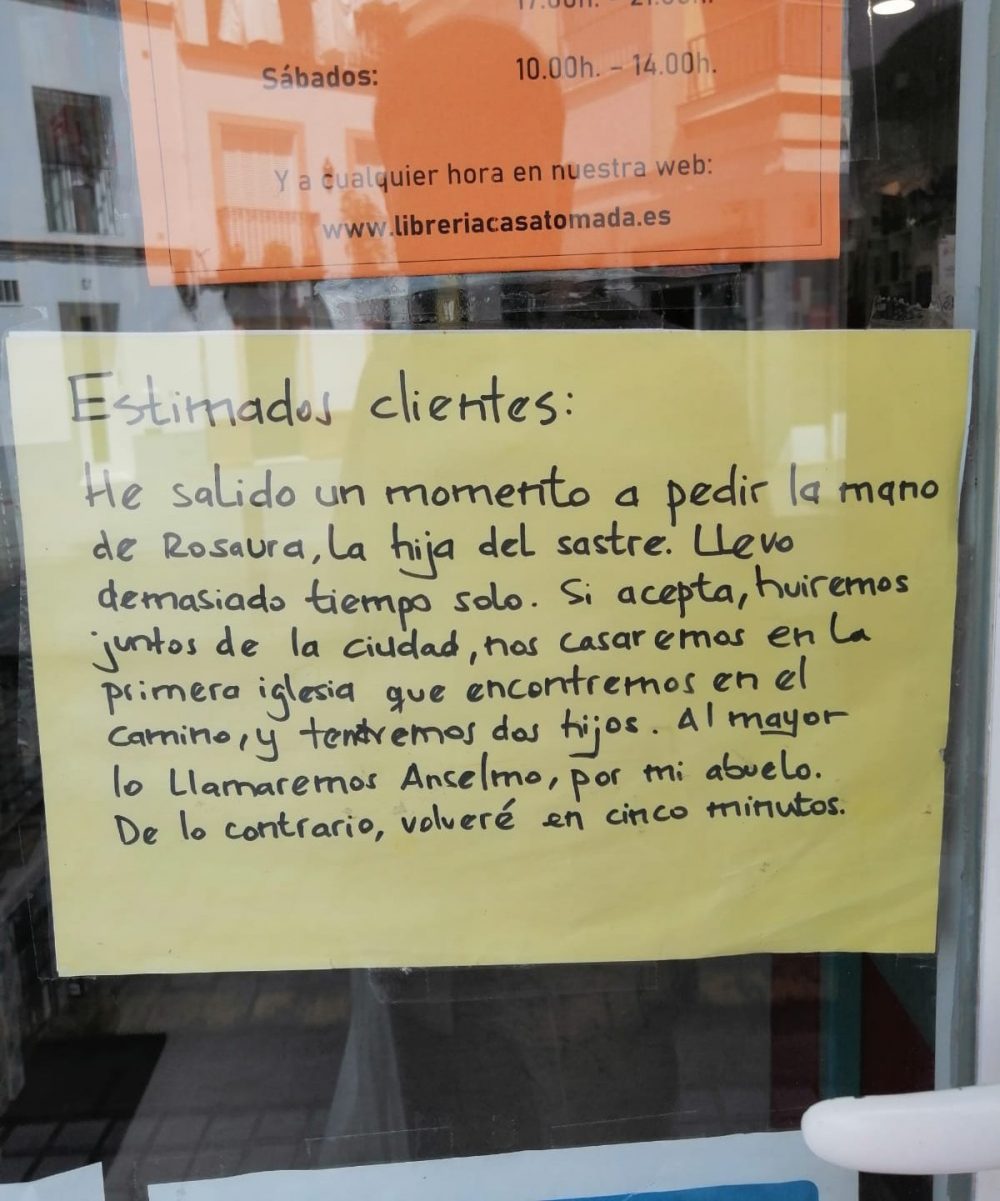 Sábados: 10.00h. - 14.00h.
Y a cualquier hora en nuestra web:
www.libreriacasatomada.es
Estimados clientes:
He salido un momento a pedir la mano
de Rosaura, la hija del sastre. Llevo
demasiado tiempo solo. Si acepta, huiremos
juntos de la ciudad, nos casaremos en la
primera iglesia que encontremos en el
camino, y tendremos dos hijos. Al mayor
lo llamaremos Anselmo, por mi abuelo.
De lo contrario, volveré en cinco minutos.